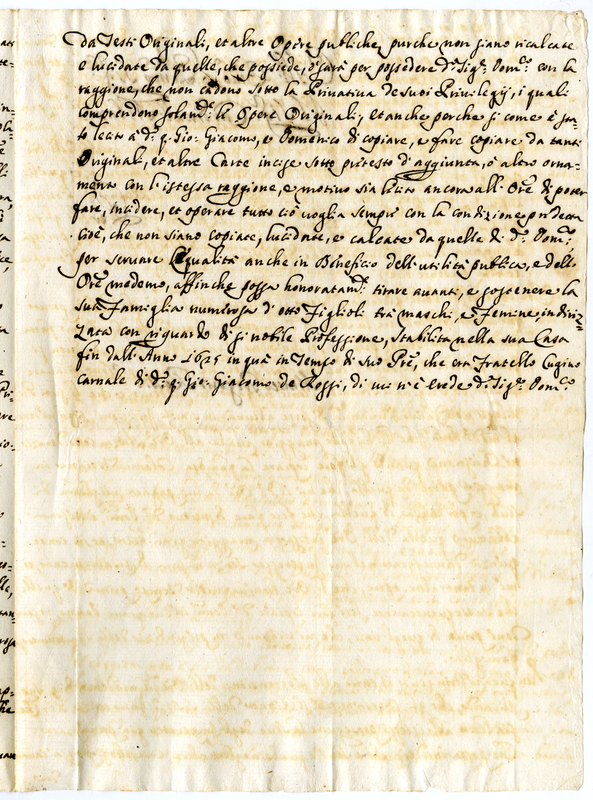 da Testi Originali, et altre Opere publiche, purche non siano ricalcate
e lucidate da quelle, che possiede, ò sarà per possedere d.º Sig.r Dom.co con la
raggione, che non cadono sotto la Privativa de suoi Privilegij, i quali
comprendono solam.te le Opere Originali, et anche perche si come è sta-
to lecito à d.i q. Gio: Giacomo, e Domenico di copiare, e fare copiare da tanti
Originali, et altre Carte incise sotto pretesto d'aggiunta, ò altro orna-
mento con l'istessa raggione, e motivo sia lecito ancora all' Ore di poter
fare, incidere, et operare tutto ciò voglia sempre con la condizione predetta
cioè, che non siano copiate, lucidate, e calcate da quelle di d.º Dom.co
per servare l'equalità anche in Beneficio dell' utilità publica, e dello
Ore medemo, affinche possa honoratam.te tirare avanti, e sostenere la
sua Famiglia numerosa d'otto Figlioli trà maschi, e Femine, indiriz-
zata con riguardo di sì nobile Professione, stabilita nella sua Casa
fin dall' Anno 1625 in quà in Tempo di suo Pre, che era Fratello Cugino
Carnale di d.º q. Gio: Giacomo de Rossi, di cui n'è Erede d.º Sig.r Dom.co